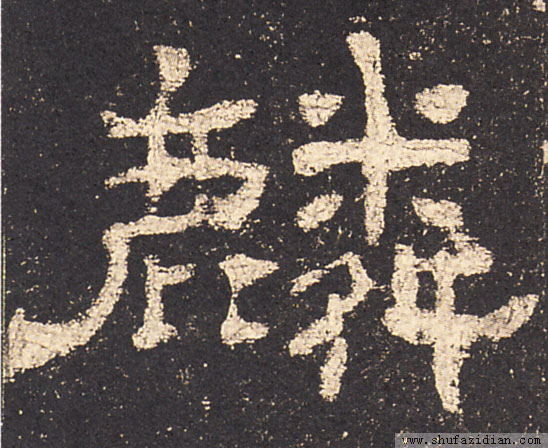 麟
www.shufazidian.com